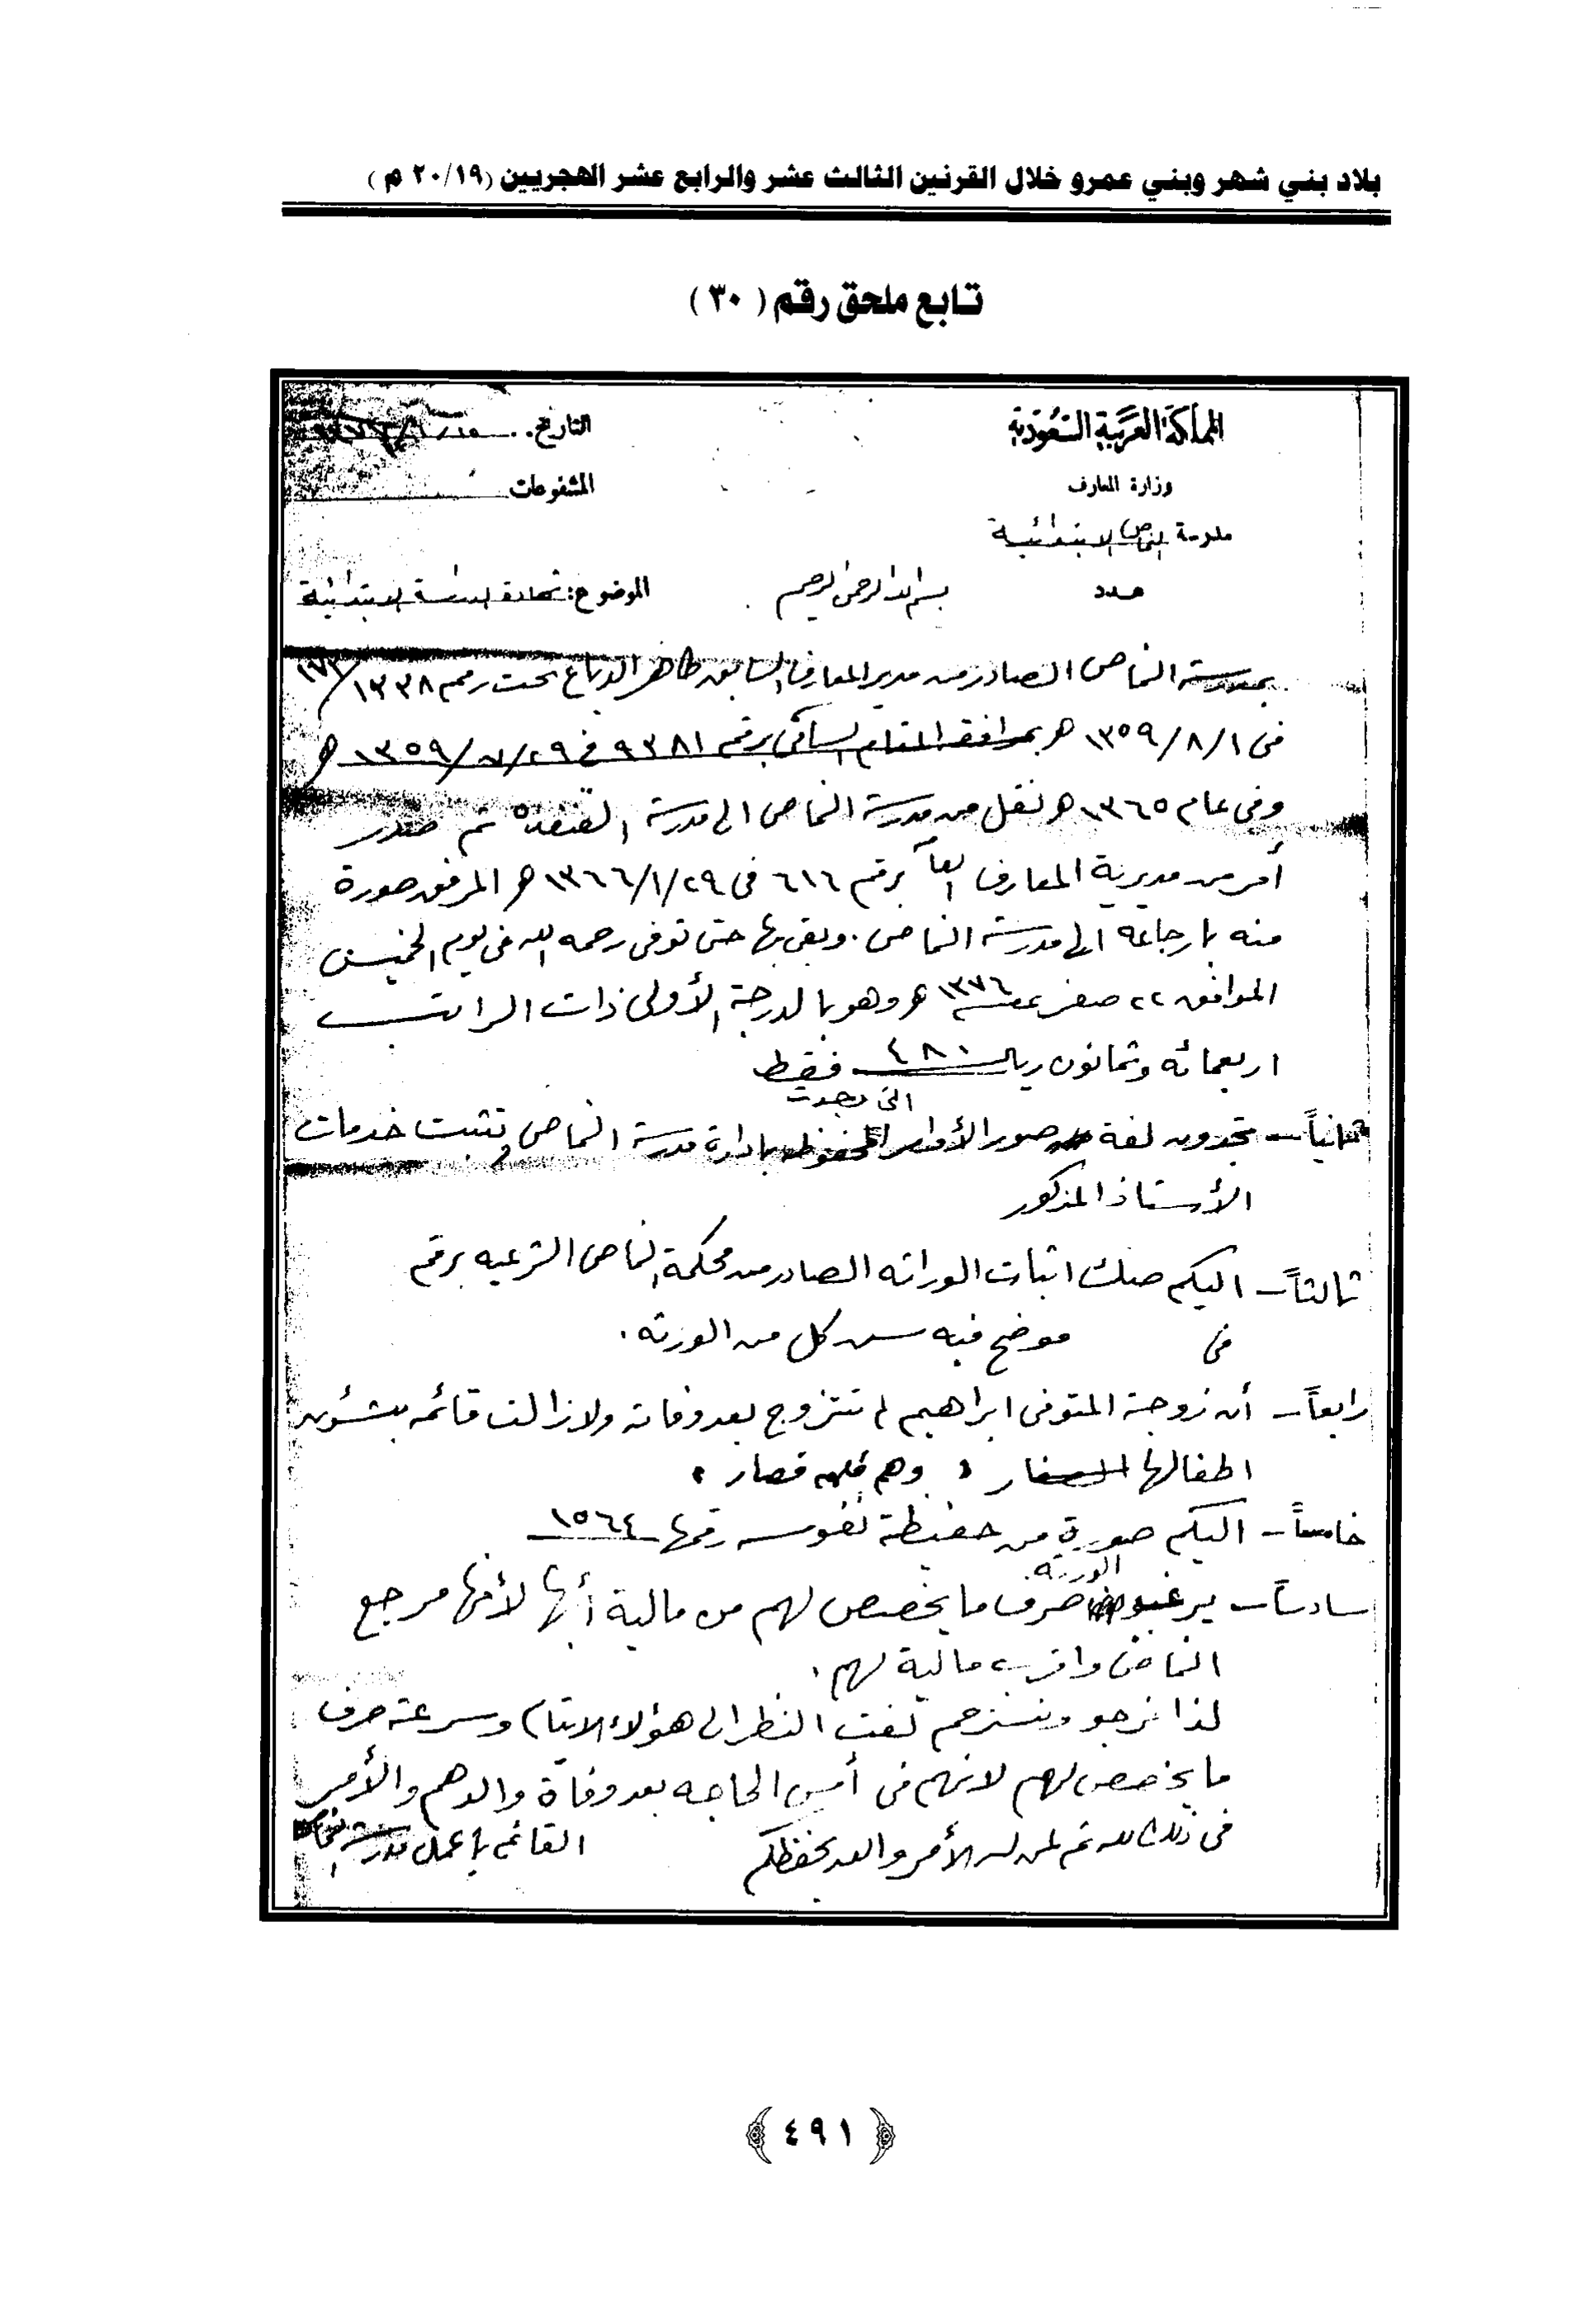 بلاد بني شهر وبني عمرو خلال القرنين الثالث عشر والرابع عشر الهجريين (٢٠/١٩ م)
تابع ملحق رقم (٣٠)
المملكة العربية السعودية
التاريخ
وزارة المعارف
المشفوعات
مدرسة النماص الابتدائية
عدد
بسم الله الرحمن الرحيم
الموضوع: شهادة الدراسة الابتدائية
بمدرسة النماص الصادر من مدير المعارف السابق طاهر الدباغ تحت رقم ١٣٣٨/١٧٣
في ١٣٥٩/٨/١ هـ بموافقة المقام السامي برقم ٩٣٨١ في ١٣٥٩/٧/٢٩ هـ
وفي عام ١٣٦٥ هـ نقل من مدرسة النماص الى مدرسة القنفدة ثم صدر
أمر من مديرية المعارف العامة برقم ٦١٦ في ١٣٦٦/١/٢٩ هـ المرفق صورة
منه بارجاعه الى مدرسة النماص. وبقى بها حتى توفى رحمه الله في يوم الخميس
الموافق ٢٢ صفر عام ١٣٧٦ هـ وهو بالدرجة الأولى ذات الراتب
اربعمائه وثمانون ريال ٤٨٠ فقط
ثانياً - تجدون لفة صور الأوامر التي وجدت المحفوظة بادارة مدرسة النماص تثبت خدمات
الأستاذ المذكور
ثالثاً - اليكم صك اثبات الوراثه الصادر من محكمة النماص الشرعيه برقم
في موضح فيه سن كل من الورثه.
رابعاً - أن زوجة المتوفى ابراهيم لم تتزوج بعد وفاته ولا زالت قائمه بشئون
اطفالها الصغار وهم قصار
خامساً - اليكم صورة من حفيظة نفوسه رقمها ١٥٦٤
سادساً - يرغبون الورثه صرف ما يخصص لهم من مالية أبها لأنها مرجع
النماص واقرب مالية لهم.
لذا نرجو ونسترحم لفت النظر الى هؤلاء الايتام وسرعة صرف
ما يخصص لهم لانهم في أمس الحاجه بعد وفاة والدهم والأمر
في ذلك لله ثم لمن له الأمر والله يحفظكم
القائم بأعمال مدرسة النماص
﴿ ٤٩١ ﴾